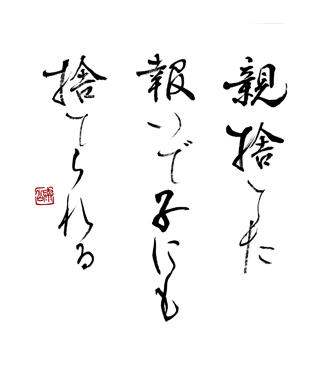 親捨てた
報いで子にも
捨てられる